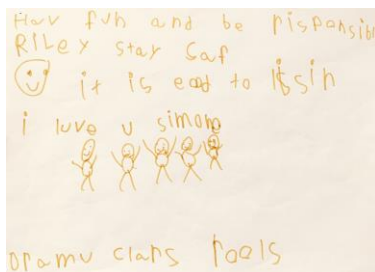 Hav fun and be risponsibl
RiLey stay Saf
it is eod to lissin
i luve u simone
Dramu clars rools